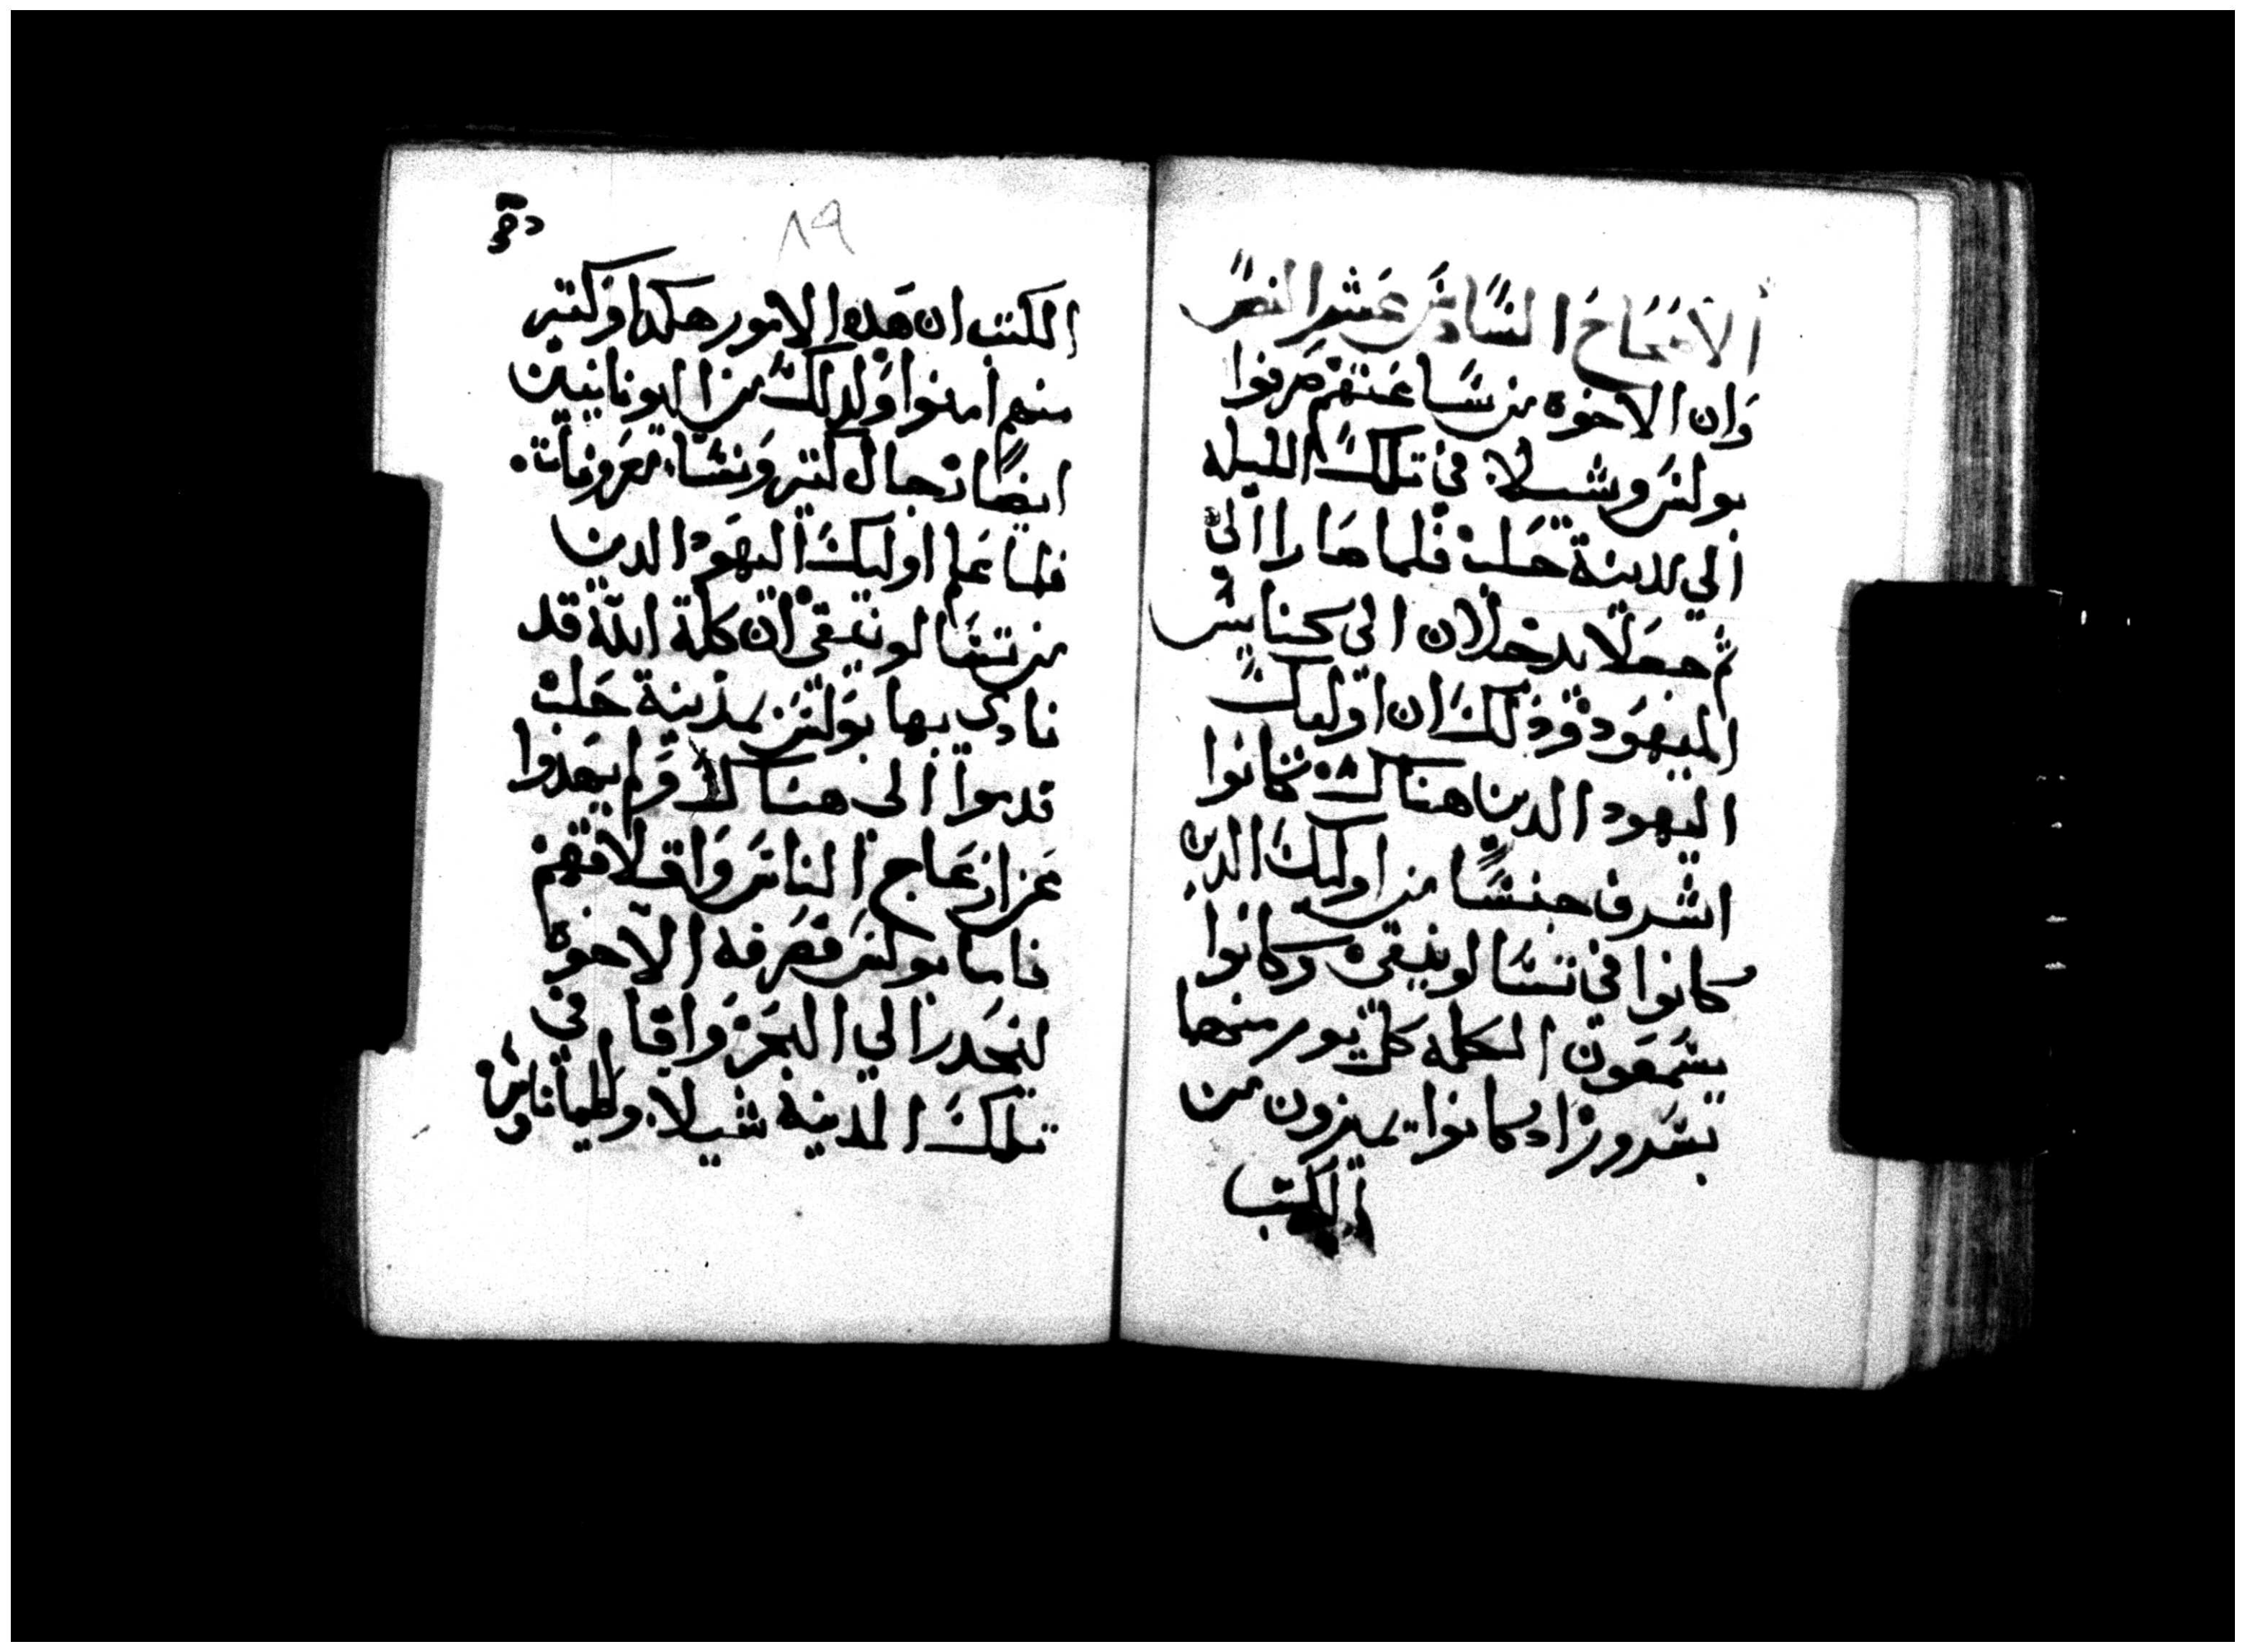 الاصحاح السادس عشر النص
وان الاخوة من ساعتهم صرفوا
بولس وشيلا في تلك الليله
الي مدينة حلب فلما صارا الى
ثم جعلا يدخلان الى كنايس
اليهود وذلك ان اوليك
اليهود الدين هناك كانوا
اشرف جنسا من اوليك الدين
كانوا في تسالونيقى وكانوا
يسمعون الكلمه كل يوم منهما
بسرور زاد كانوا يميزون من
الكتب
٨٩
الكتب ان هده الامور هكدا وكتير
منهم امنوا وكدلك من اليونانيين
ايضا رجال كتير ونسا معروفات
فلما علم اوليك اليهود الدين
من تسالونيقى ان كلمة الله قد
نادى بها بولس بمدينة حلب
قدموا الى هناك ولم يهدوا
عن ازعاج الناس واقلاقهم
فاما بولس فصرفه الاخوة
لينحدر الي البحر واقام في
تلك المدينة شيلا وطيماتاوس